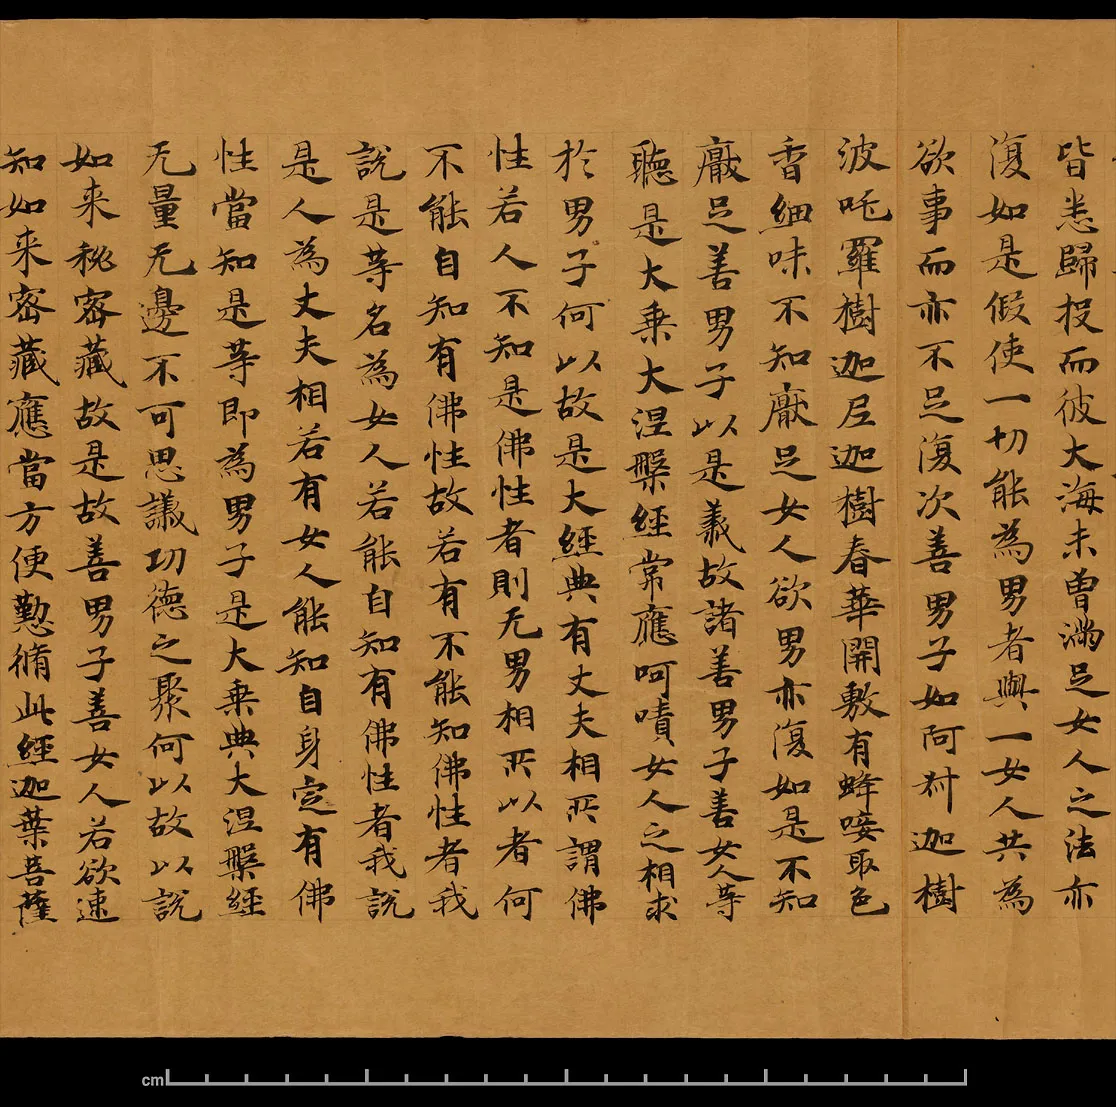 皆悉歸投而彼大海未曾滿足女人之法亦
復如是假使一切能為男者與一女人共為
欲事而亦不足復次善男子如阿叔迦樹
波吒羅樹迦尼迦樹春華開敷有蜂唼取色
香細味不知厭足女人欲男亦復如是不知
厭足善男子以是義故諸善男子善女人等
聽是大乗大涅槃經常應呵嘖女人之相求
於男子何以故是大經典有丈夫相所謂佛
性若人不知是佛性者則无男相所以者何
不能自知有佛性故若有不能知佛性者我
說是等名為女人若能自知有佛性者我說
是人為丈夫相若有女人能知自身定有佛
性當知是等即為男子是大乗典大涅槃經
无量无邊不可思議功德之聚何以故以說
如来秘密藏故是故善男子善女人若欲速
知如来密藏應當方便懃脩此經迦葉菩薩
cm